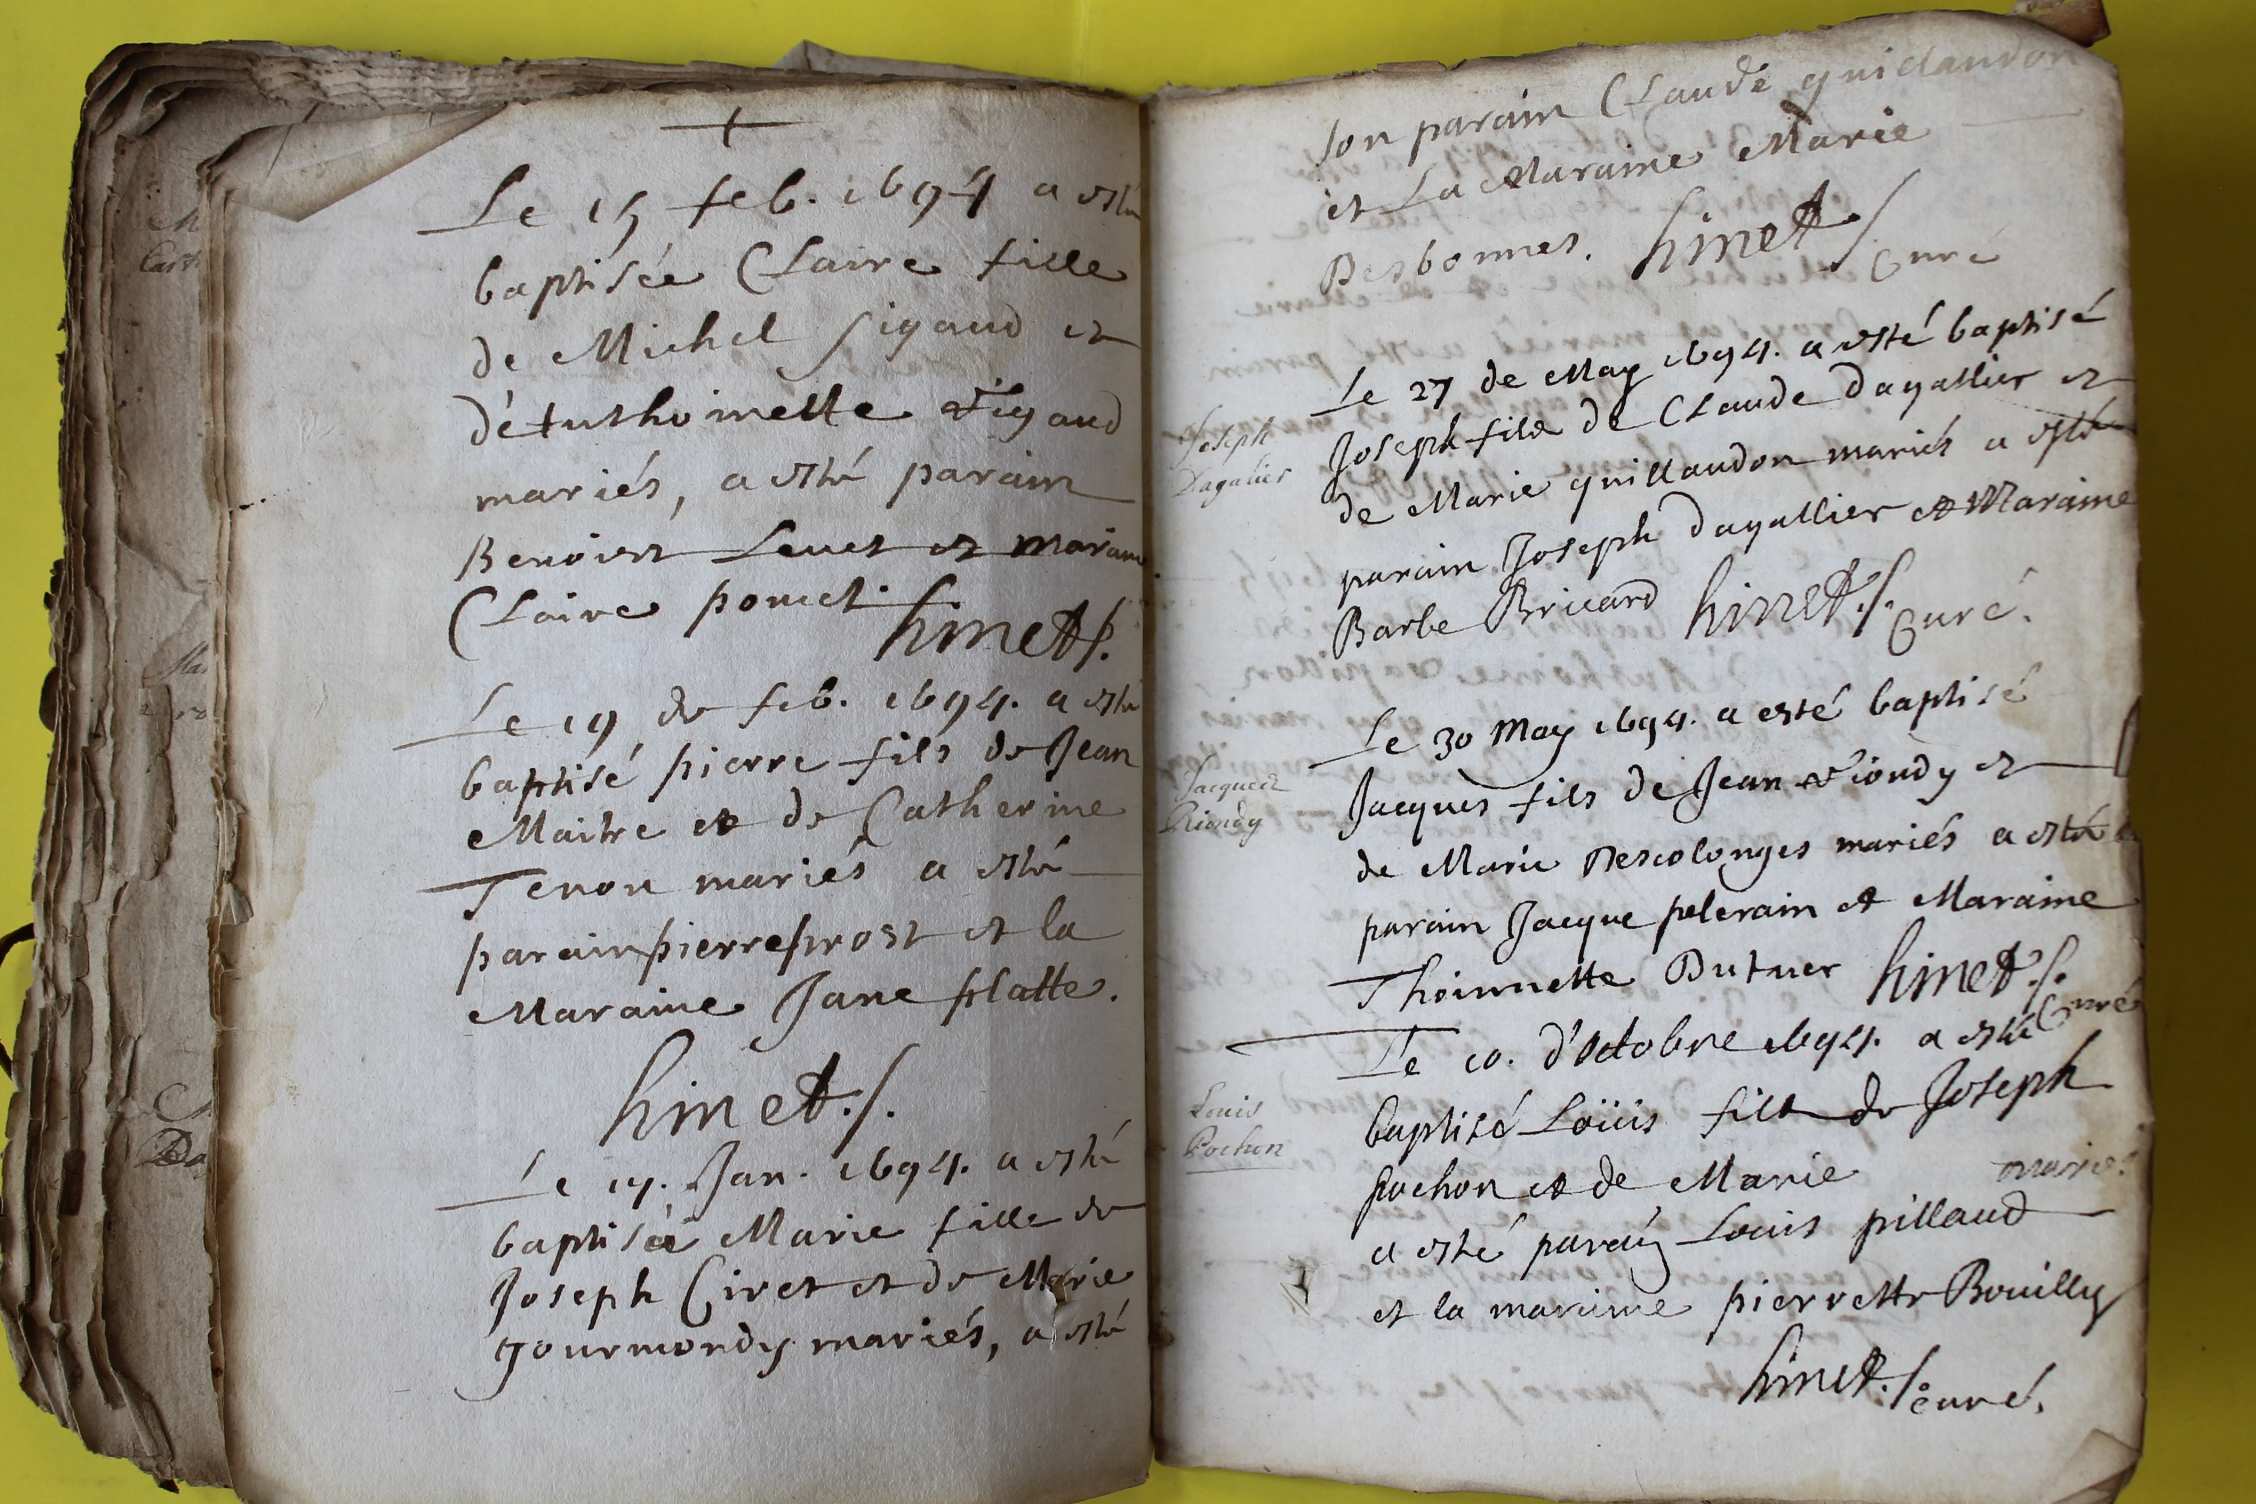 Le 15 feb. 1694 a esté
baptisée Claire fille
de Michel Sigaud et
d'Anthoinette Rigaud
mariés, a esté parain
Benoist Levet et Maraine
Claire poncet. hinet
Le 19 de feb. 1694. a esté
baptisé pierre fils de Jean
Maitre et de Catherine
Tenon mariés a esté
parain pierre prost et la
Maraine Jane platte.
hinet
Le 14. Jan. 1694. a esté
baptisée Marie fille de
Joseph Civet et de Marie
gourmondy mariés, a esté
son parain Claude guillaudon
et La Maraine Marie
Desbonnes. hinet
Curé
Le 27 de May 1694. a esté baptisé
Joseph fils de Claude Dagallier et
de Marie guillaudon mariés a esté
parain Joseph Dagallier et Maraine
Barbe Bricard hinet Curé.
Joseph
Dagalier
Le 30 May 1694. a esté baptisé
Jacques fils de Jean Riondy et
de Marie Descolonges mariés a esté
parain Jacque pelerain et Maraine
Thoinnette hinet
Curé
Jacques
Riondy
Le 10. d'Octobre 1694. a esté
baptisé Loüis fils de Joseph
pochon et de Marie mariés
a esté parain Louis pillaud
et la maraine pierrette Bouilly
hinet curé.
Louis
Pochon